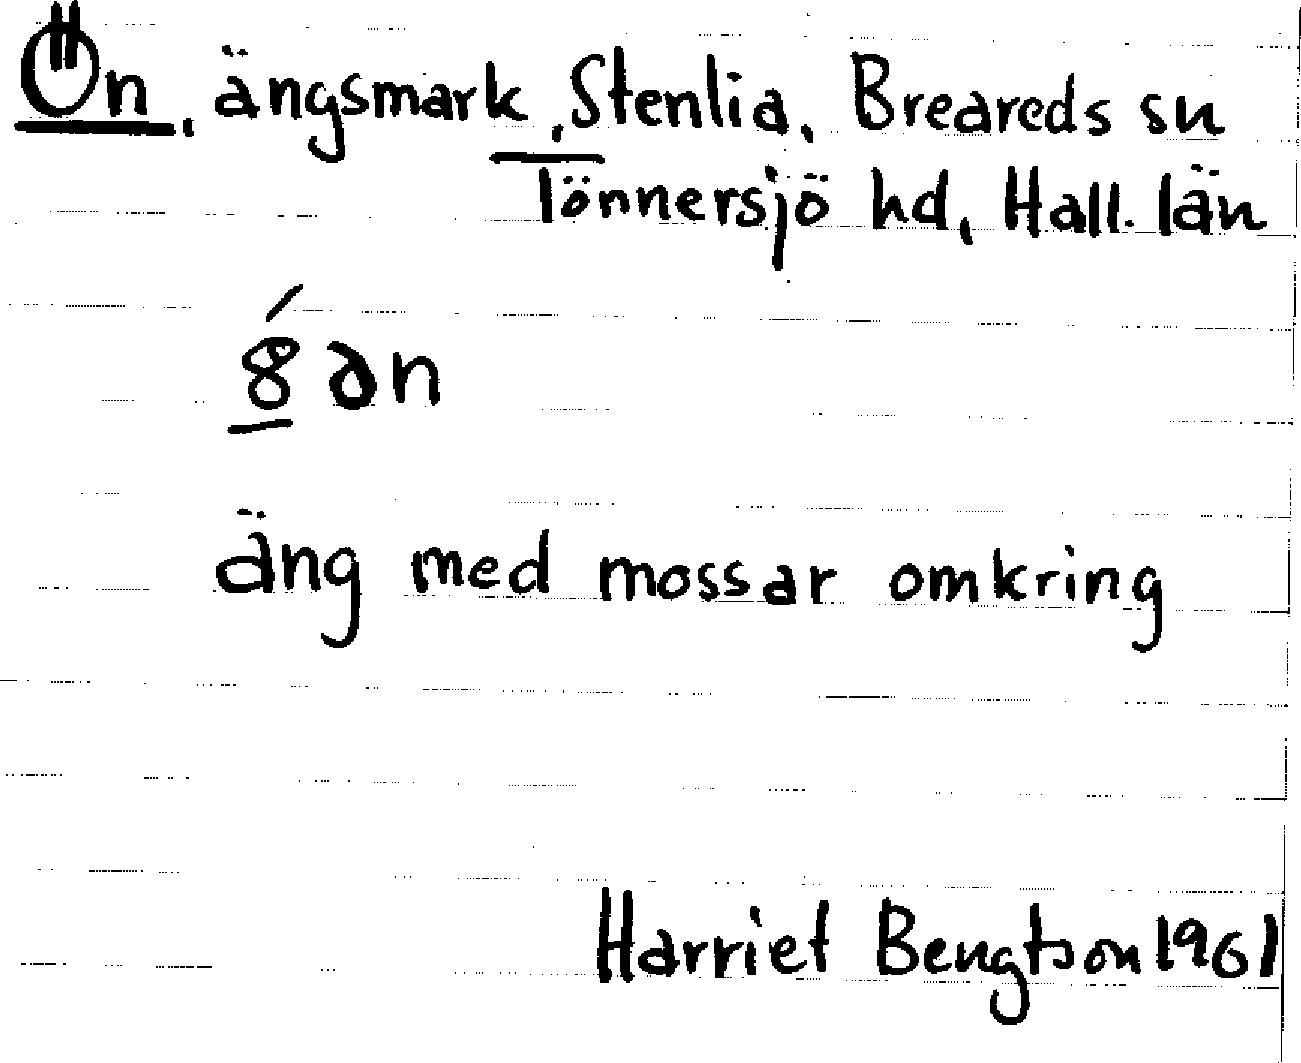 Ön, ängsmark, Stenlia, Breareds sn
Tönnersjö hd, Hall. län
8́ ən
äng med mossar omkring
Harriet Bengtson 1961